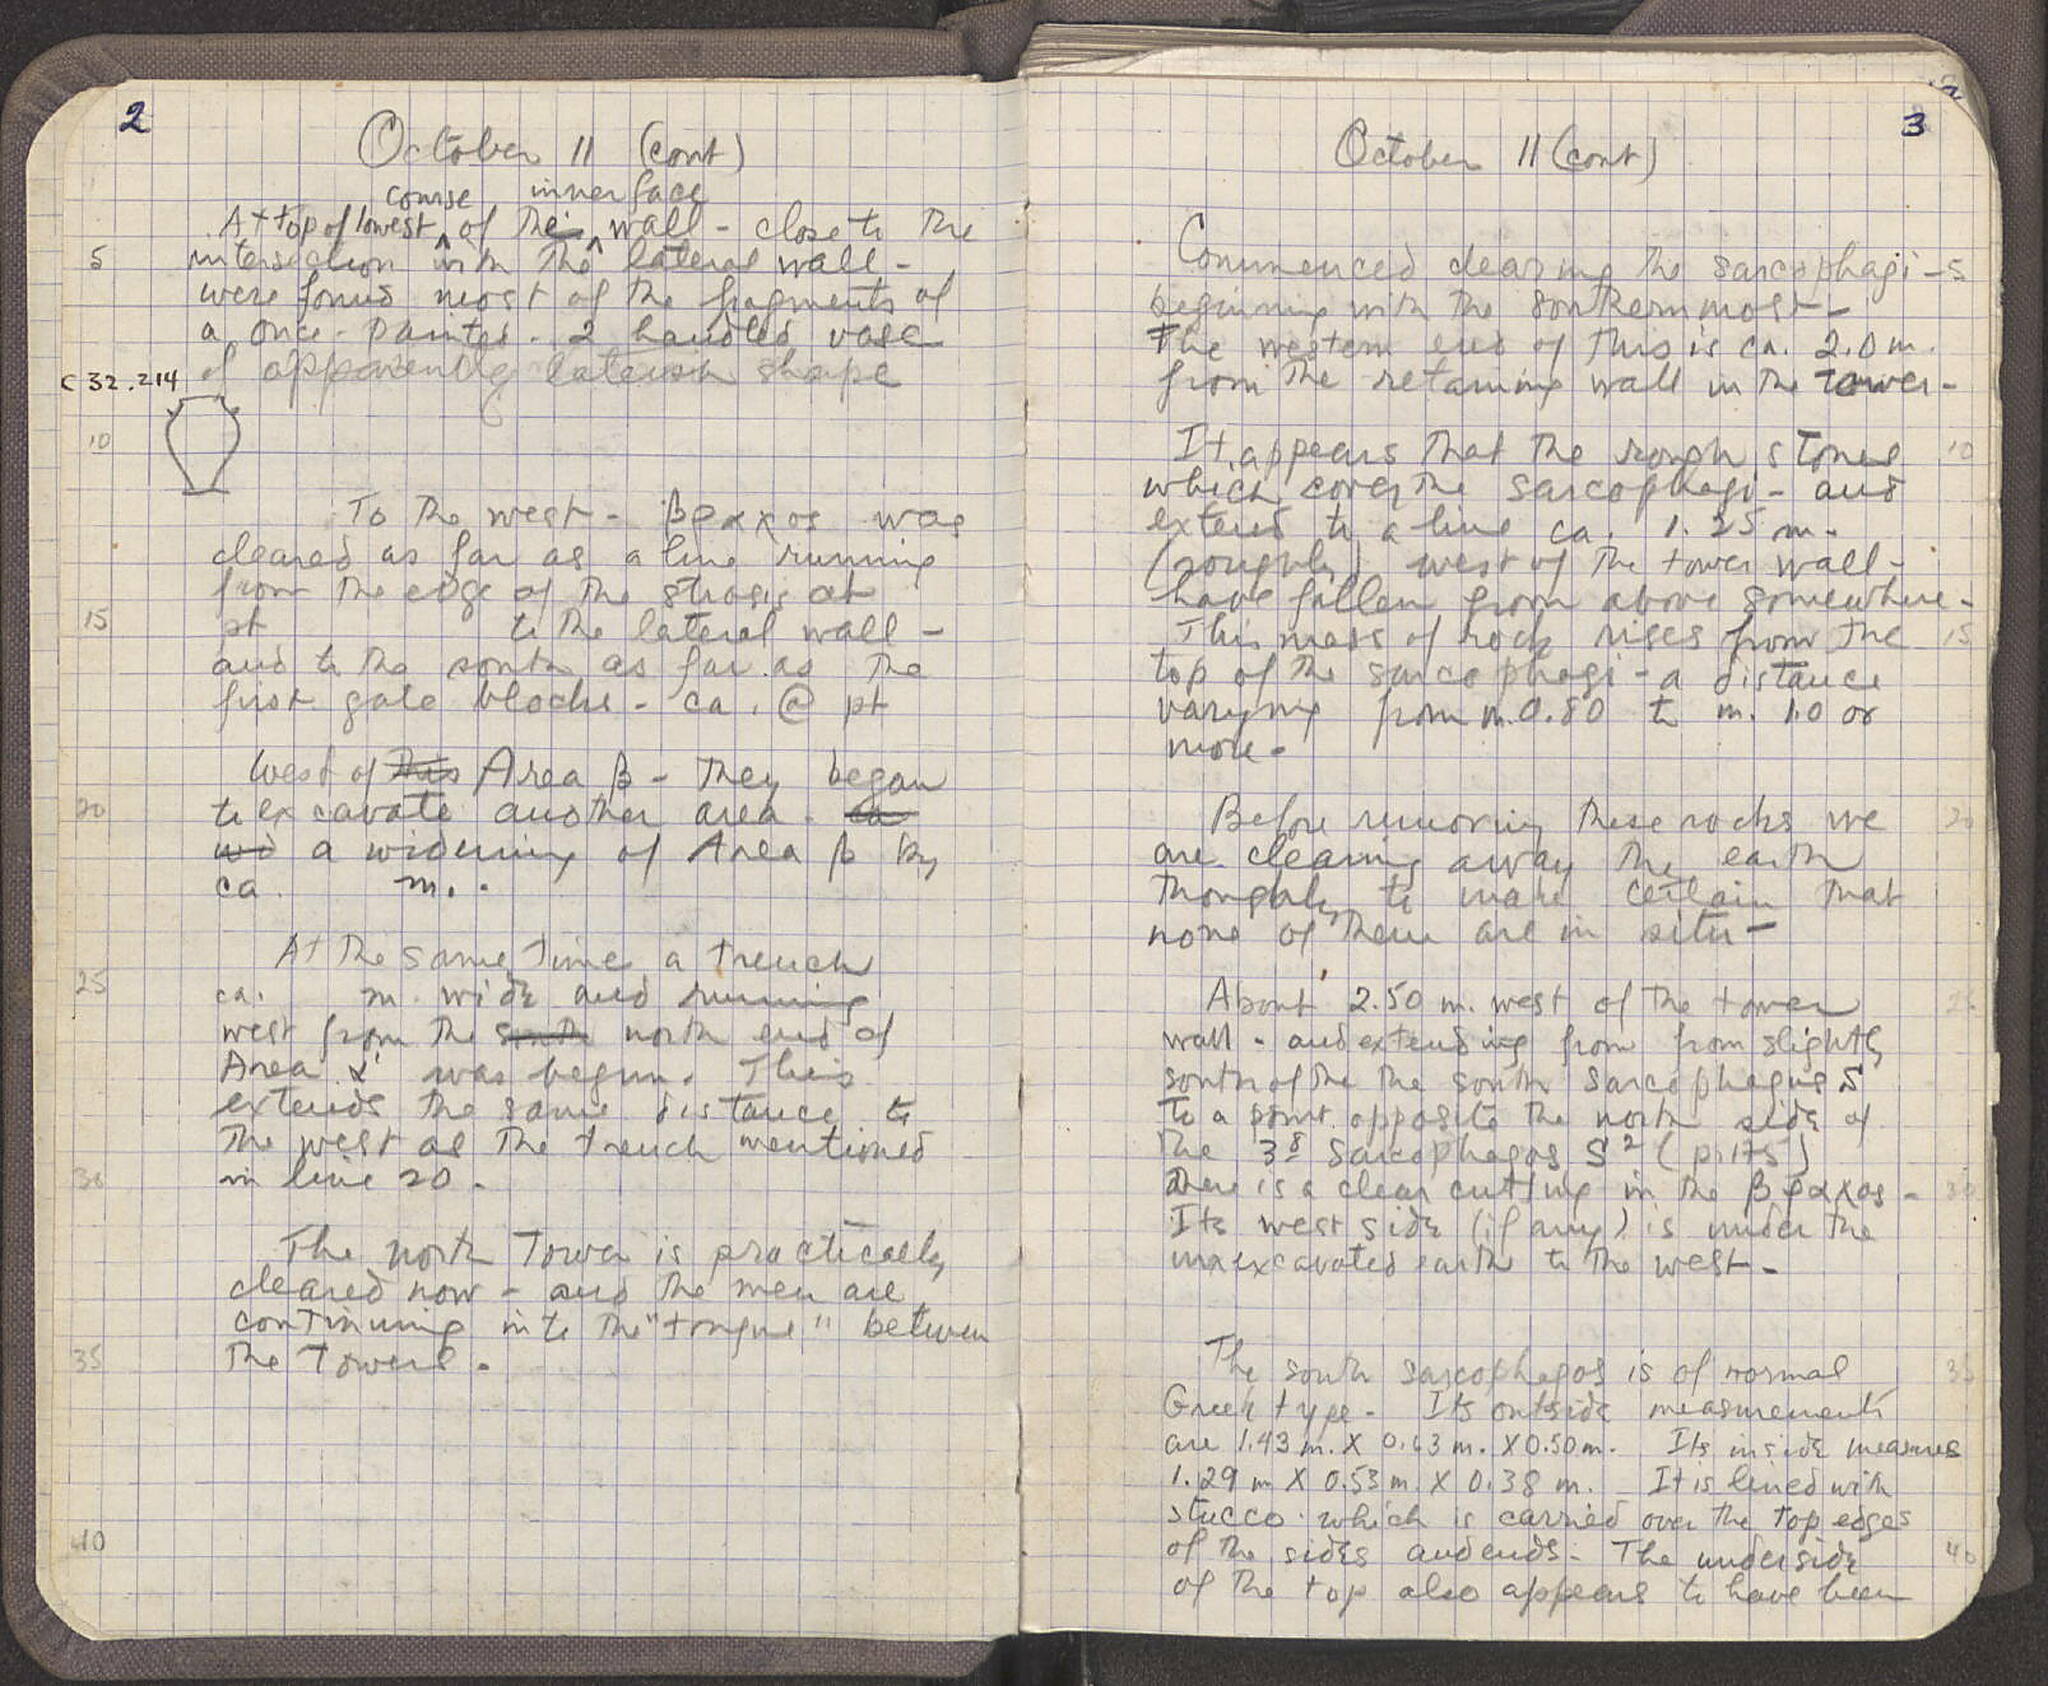 2
October 11 (cont)
course inner face
At top of lowest of the wall - close to the
5 intersection with the lateral wall -
were found most of the fragments of
a once-painted - 2 handled vase
C 32.214 of apparently lateish shape
10
To the west - βραχχος was
cleared as far as a line running
from the edge of the strosis at
15 pt to the lateral wall -
and to the south as far as the
first gate blocks - ca. @ pt
West of this Area β - they began
20 to excavate another area - ca
wd a widening of Area β by
ca. m. .
At the same time a trench
25 ca. m. wide and running
west from the south north end of
Area α' was begun. This
extends the same distance to
the west as the trench mentioned
30 in line 20 .
The north Tower is practically
cleared now - and the men are
continuing into the "tongue" between
35 the towers .
40
3
October 11 (cont)
Commenced clearing the sarcophagi - 5
beginning with the southernmost -
The western end of this is ca. 2.0 m.
from the retaining wall in the tower -
It appears that the rough stones 10
which cover the sarcophagi - and
extend to a line ca. 1.25 m.
(roughly) west of the tower wall -
have fallen from above somewhere -
This mass of rock rises from the 15
top of the sarcophagi - a distance
varying from m. 0.80 to m. 1.0 or
more -
Before removing these rocks we 20
are cleaning away the earth
thoughly to make certain that
none of them are in situ -
About 2.50 m. west of the tower 25
wall - and extending from from slightly
south of the the south sarcophagus S
to a point opposite the north side of
the 3d sarcophagos S² (p. 175)
there is a clear cutting in the βραχχος - 30
Its west side (if any) is under the
unexcavated earth to the west -
The south sarcophagos is of normal 35
Greek type - Its outside measurements
are 1.43 m. X 0.63 m. X 0.50 m. Its inside measures
1.29 m X 0.53 m. X 0.38 m. It is lined with
stucco which is carried over the top edges
of the sides and ends - The underside 40
of the top also appears to have been